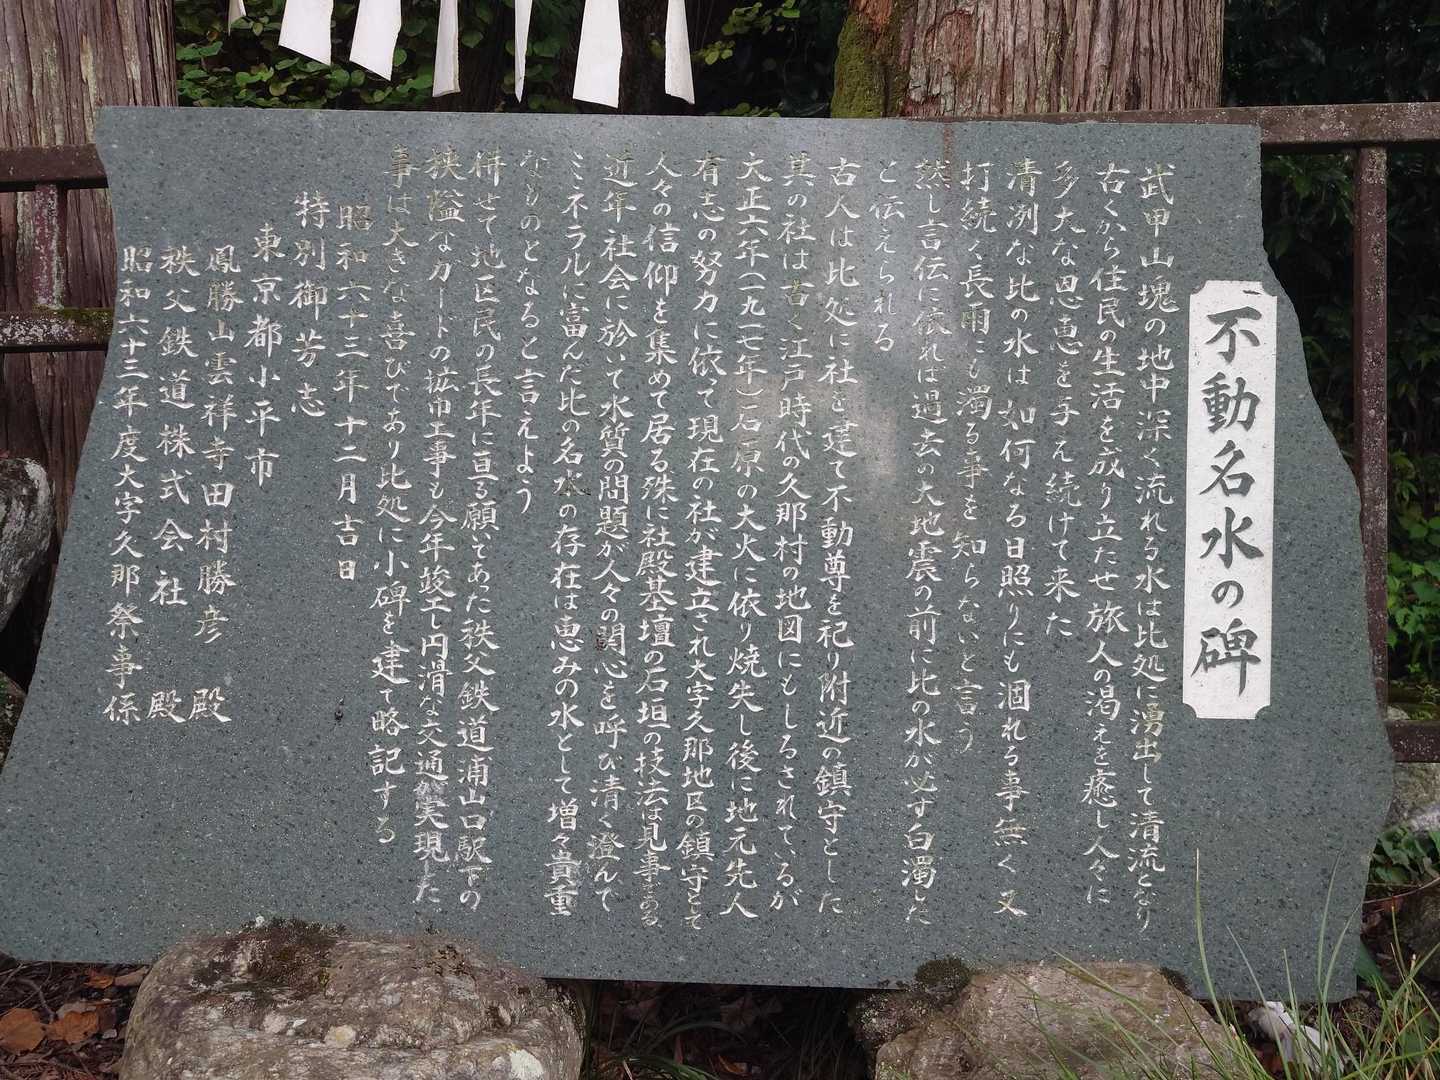 不動名水の碑
武甲山塊の地中深く流れる水は比処に湧出して清流となり
古くから住民の生活を成り立たせ旅人の渇えを癒し人々に
多大な恩恵を与え続けて来た
清洌な比の水は如何なる日照りにも涸れる事無く又
打続く長雨にも濁る事を知らないと言う
然し言伝に依れば過去の大地震の前に比の水が必す白濁した
と伝えられる
古人は比処に社を建て不動尊を祀り附近の鎮守とした
其の社は古く江戸時代の久那村の地図にもしるされているが
大正六年(一九一七年)石原の大火に依り焼失し後に地元先人
有志の努力に依って現在の社が建立され大字久那地区の鎮守として
人々の信仰を集めて居る殊に社殿基壇の石垣の技法は見事である
近年社会に於いて水質の問題が人々の関心を呼び清く澄んで
ミネラルに富んだ比の名水の存在は恵みの水として増々貴重
なものとなると言えよう
併せて地区民の長年に亘る願いであった秩父鉄道浦山口駅下の
狭隘なガードの拡巾工事も今年竣工し円滑な交通が実現した
事は大きな喜びであり比処に小碑を建て略記する
昭和六十三年十二月吉日
特別御芳志
東京都小平市
鳳勝山雲祥寺田村勝彦 殿
秩父鉄道株式会社 殿
昭和六十三年度大字久那祭事係